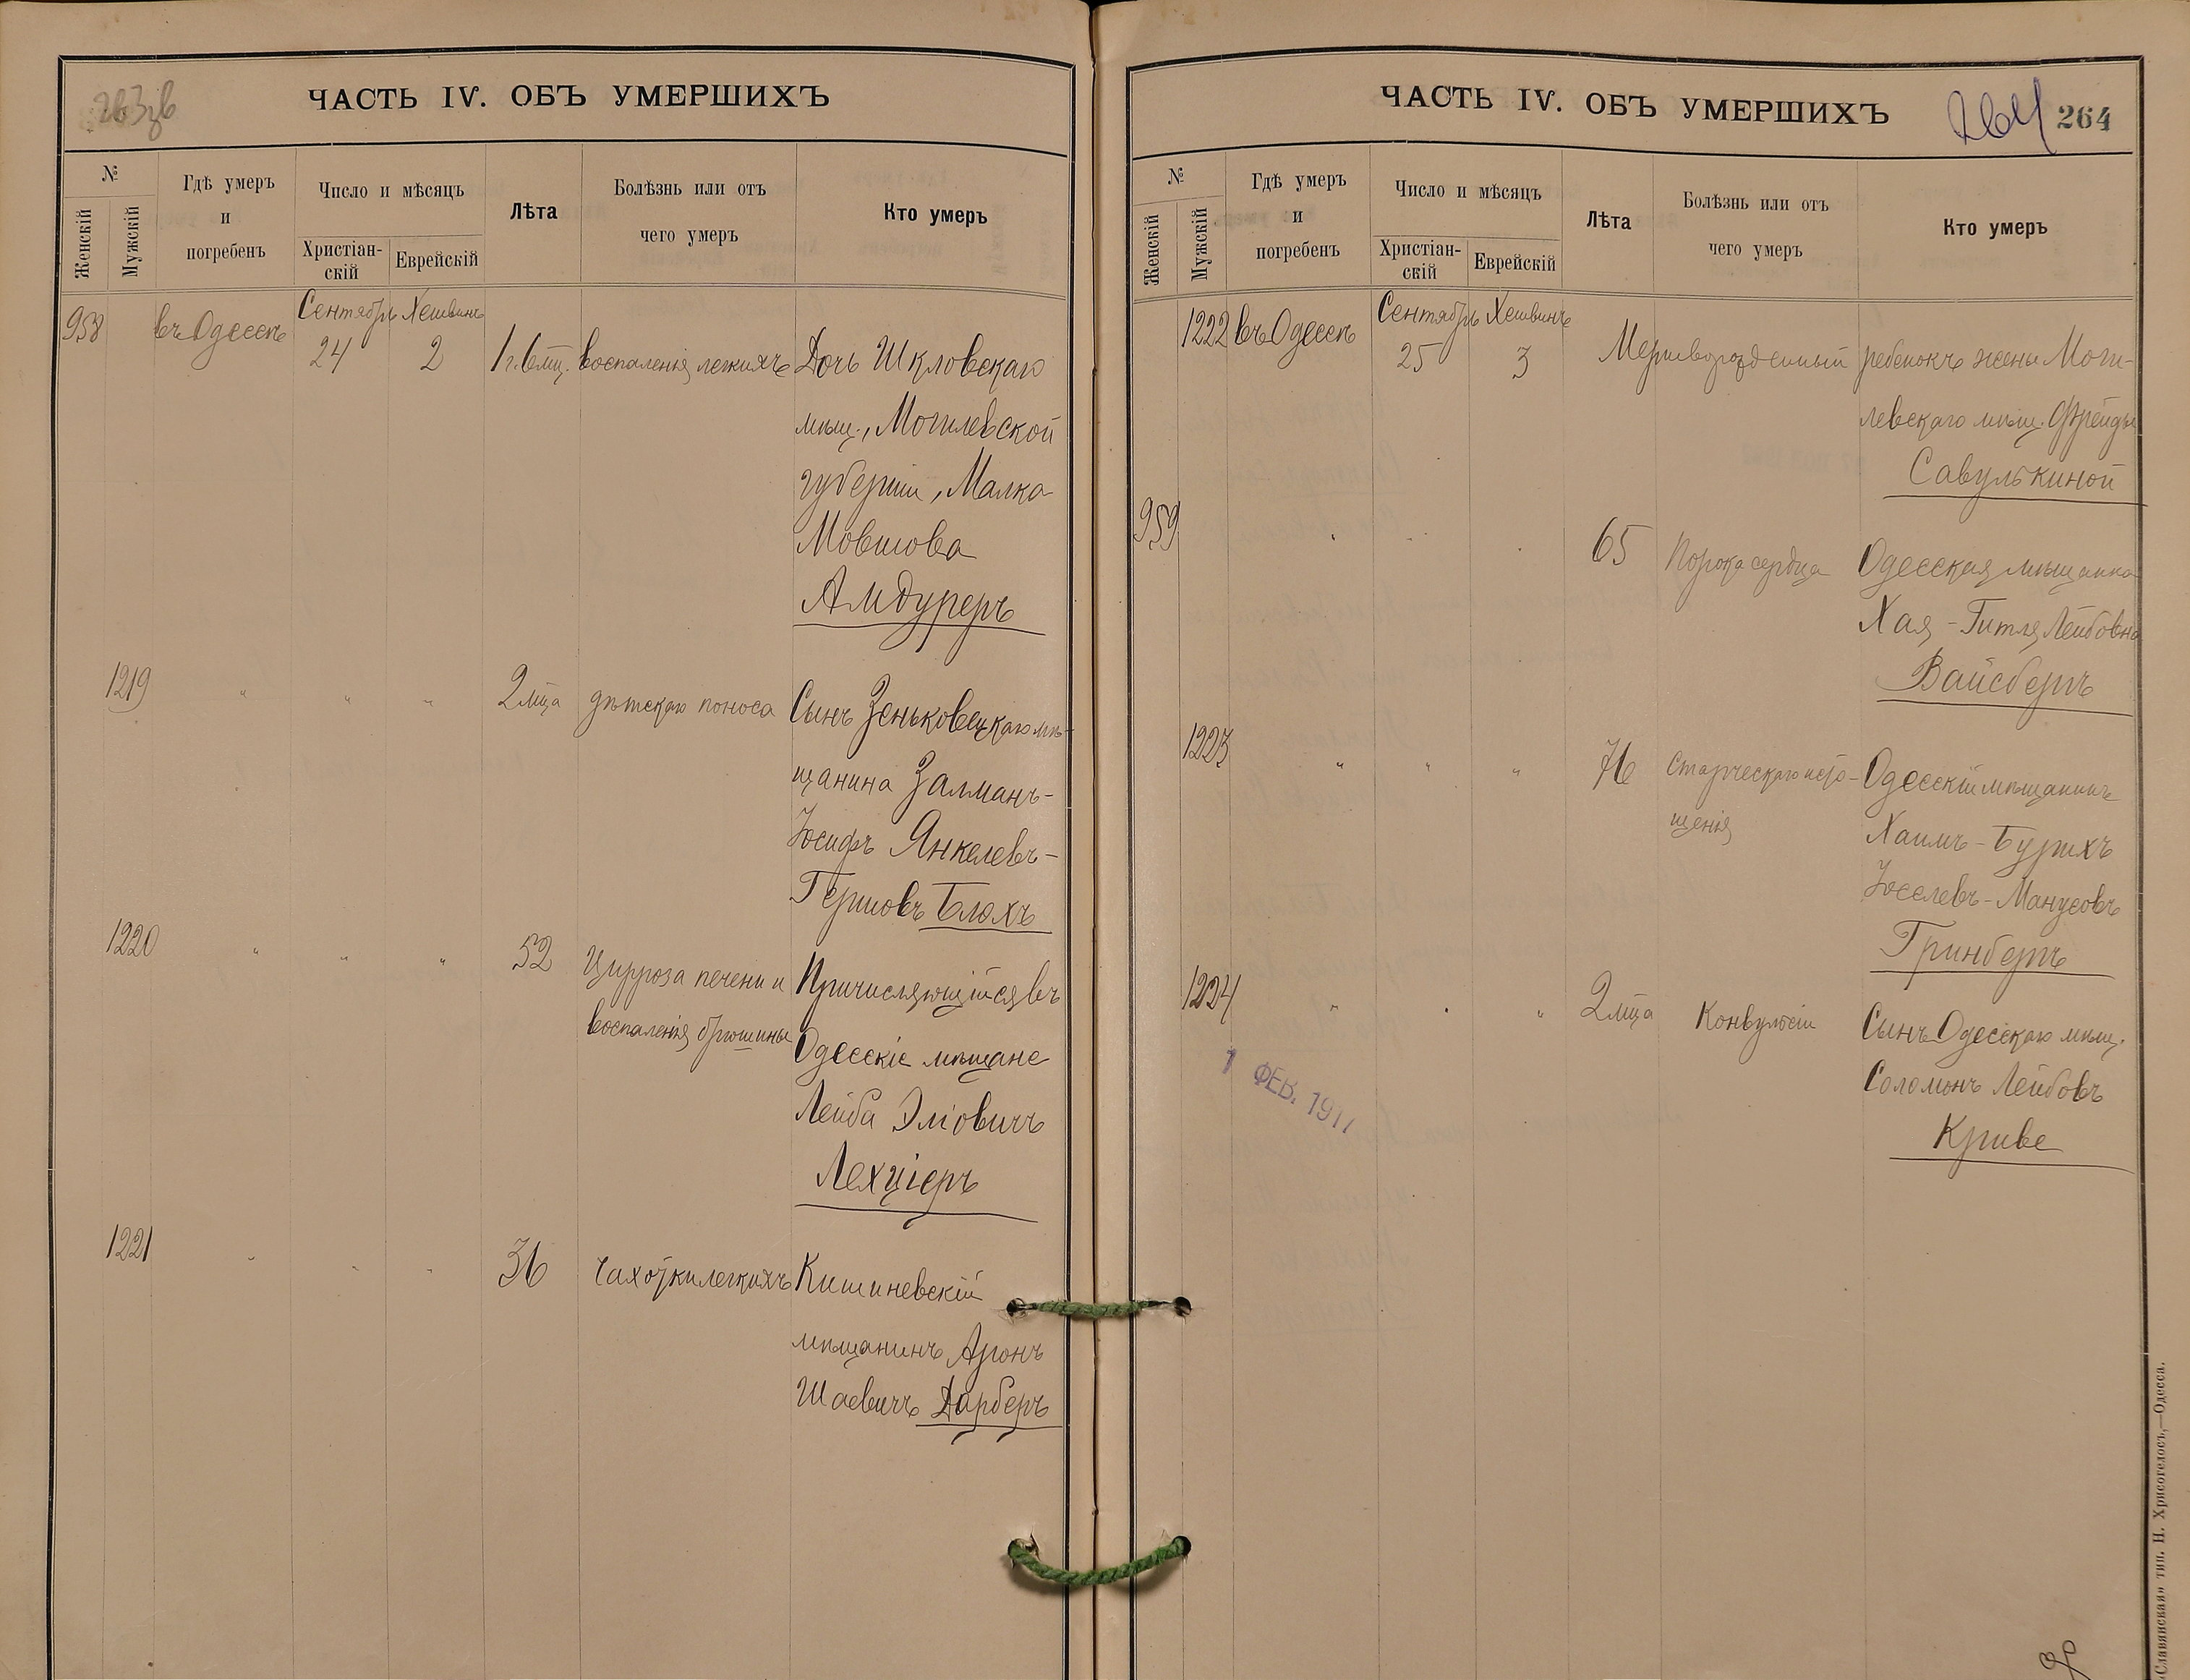 263 зв
ЧАСТЬ IV. ОБЪ УМЕРШИХЪ
№
Женскій
Мужскій
Гдѣ умеръ
и
погребенъ
Число и мѣсяцъ
Христіан-
скій
Еврейскій
Лѣта
Болѣзнь или отъ
чего умеръ
Кто умеръ
Сентябрь Хешвинъ
958 въ Одессѣ 24 2 1 г. 6 мц. воспаленія легкихъ Дочь Шкловскаго
мѣщ., Могилевской
губерніи, Малка
Мовшова
Амдуреръ
1219 " " " 2 мца дѣтскаго поноса Сынъ Зеньковецкаго мѣ-
щанина Залманъ-
Іосифъ Янкелевъ-
Гершовъ Блохъ
1220 " " " 52 Цирроза печени и Причисляющійся въ
воспаленія брюшины Одесскіе мѣщане
Лейба Эліовичъ
Лехціеръ
1221 " " " 36 Чахотки легкихъ Кишиневскій
мѣщанинъ Аронъ
Шаевичъ Дарберъ
ЧАСТЬ IV. ОБЪ УМЕРШИХЪ
264 264
№
Женскій
Мужскій
Гдѣ умеръ
и
погребенъ
Число и мѣсяцъ
Христіан-
скій
Еврейскій
Лѣта
Болѣзнь или отъ
чего умеръ
Кто умеръ
Сентябрь Хешвинъ
1222 въ Одессѣ 25 3 Мертворожденный ребенокъ жены Моги-
левскаго мѣщ. Фрейды
Савулькиной
959 " " " 65 Порока сердца Одесская мѣщанка
Хая-Гитля Лейбовна
Вайсбергъ
1223 " " " 76 Старческаго исто- Одесскій мѣщанинъ
щенія Хаимъ-Бурихъ
Іоселевъ-Манусовъ
Гринбергъ
1224 " " " 2 мца Конвульсіи Сынъ Одесскаго мѣщ.
Соломонъ Лейбовъ
Криве
1 ФЕВ. 1911
«Славянская» тип. Н. Хрисогелосъ,—Одесса.